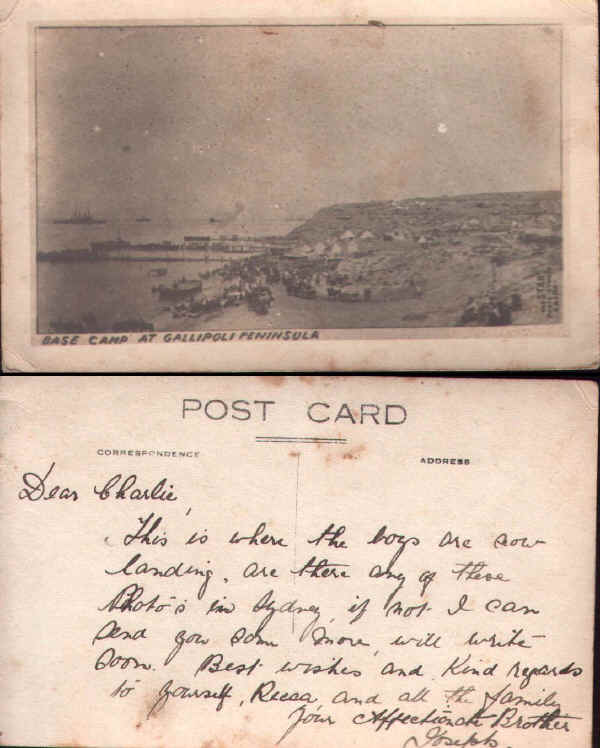 BASE CAMP AT GALLIPOLI PENINSULA
POST CARD
CORRESPONDENCE
ADDRESS
Dear Charlie,
This is where the boys are now
landing, are there any of these
Photo's in Sydney, if not I can
send you some more, will write
soon. Best wishes and Kind regards
to yourself, Recca and all the family
Your Affectionate Brother
Joseph